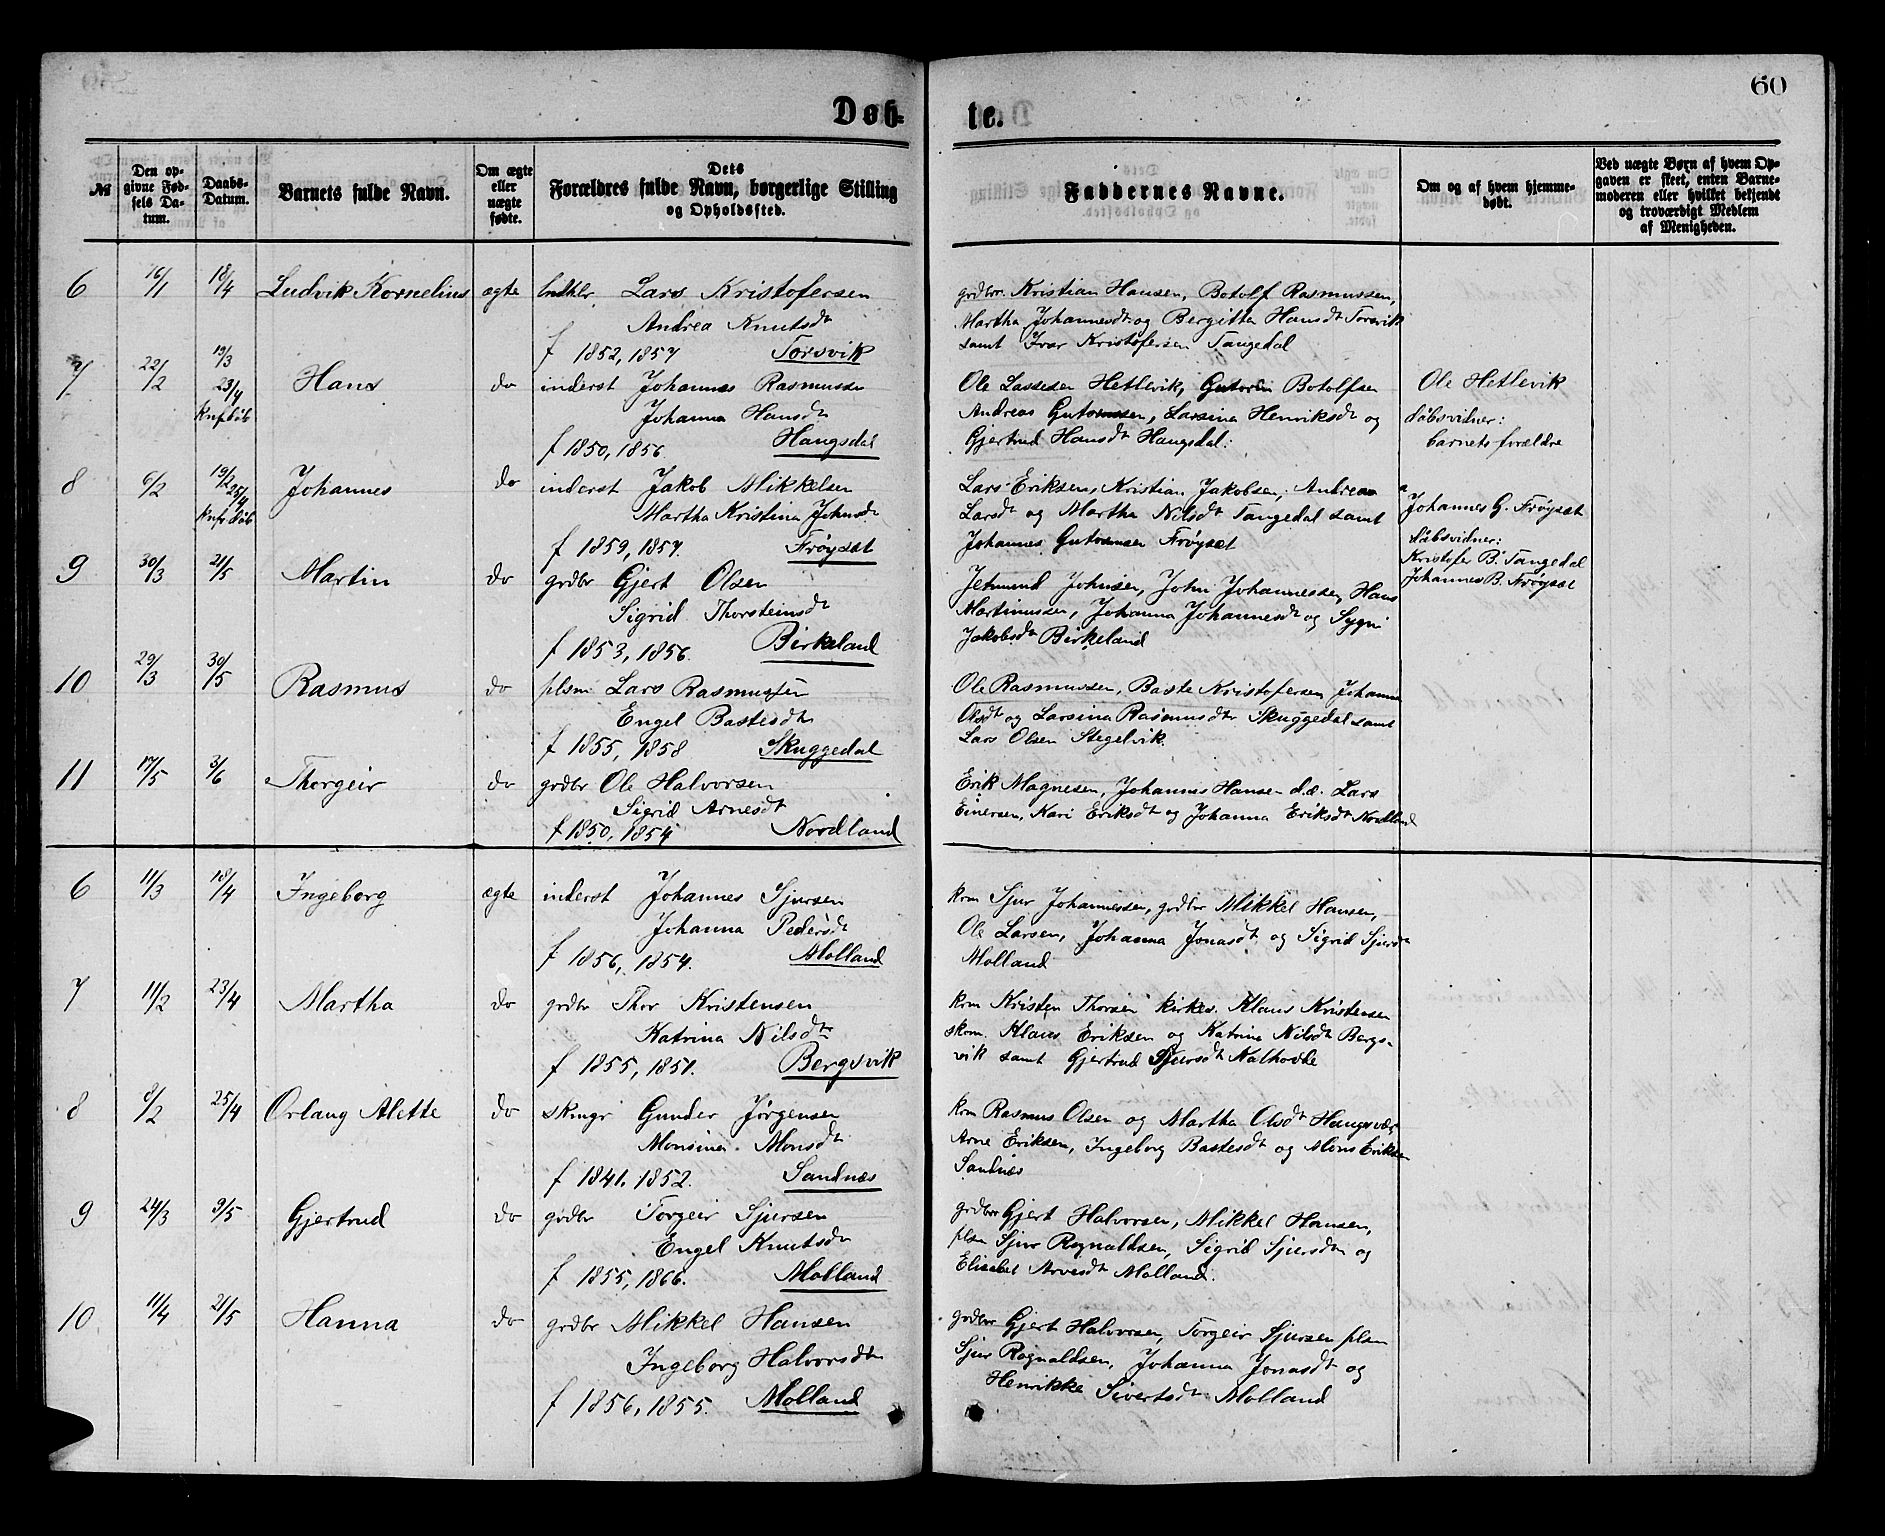 60
Døb-
te.
№
Den op-
givne Fød-
sels Da-
tum.
Daabs-
Datum.
Barnets fulde Navn.
Om ægte
eller
uægte
fødte.
Dets
Forældres fulde Navn, borgerlige Stilling
og Opholdssted.
Faddernes Navne.
Om og af hvem hjemme-
døbt.
Ved uægte Børn af hvem Op-
gaven er skeet, enten Barne-
moderen eller hvilket bekjendt
og troværdigt Medlem
af Menigheden.
6 16/1 18/4 Ludvik Kornelius ægte Lars Kristofersen
Andrea Knutsdt
f 1852, 1857 Torsvik
grdbr. Kristian Hansen, Botolf Rasmussen,
Martha Johannesdt og Bergitta Hansdt Torsvik
samt Ivar Kristofersen Tangedal
7 22/2 19/3 23/4 Hans do inderst Johannes Rasmussen
Johanna Hansdt
f 1850, 1856 Haugsdal
Ole Lassesen Hetlevik, Gutorm Botolfsen
Andreas Gutormsen, Larsina Henriksdt og
Gjertrud Hansdt Haugsdal.
Ole Hetlevik
døbsvidner:
barnets forældre
8 6/2 19/2 25/4 Johannes do inderst Jakob Mikkelsen
Martha Kristina Johnsdt
f 1859, 1857. Frøyset
Lars Eriksen, Kristian Jakobsen, Andrea
Larsdt og Martha Nilsdt Tangedal samt
Johannes Gutormsen Frøyset
Johannes G. Frøyset
døbsvidner:
Kristofer B. Tangedal
Johannes B. Frøyset
9 30/3 21/5 Martin do grdbr Gjert Olsen
Sigrid Thorsteinsdt
f 1853, 1856. Birkeland
Jetmund Johnsen, John Johannessen, Hans
Martinussen, Johanna Johannesdt og Sygni
Jakobsdt Birkeland
10 29/3 30/5 Rasmus do plsm Lars Rasmussen
Engel Bastesdt
f 1855, 1858 Skuggedal
Ole Rasmussen, Baste Kristofersen, Johanna
Olsdt og Larsina Rasmusdtr Skuggedal samt
Lars Olsen Stegelvik.
11 17/5 3/6 Thorgeir do grdbr Ole Halvorsen
Sigrid Arnesdt
f 1850, 1854 Nordland
Erik Magnesen, Johannes Hansen d.æ. Lars
Einersen, Kari Eriksdt og Johanna Eriksdt Nordland
6 11/3 18/4 Ingeborg ægte inderst Johannes Sjursen
Johanna Pedersdt
f 1856, 1854. Molland
kom Sjur Johannessen, grdbr Mikkel Hansen,
Ole Larsen, Johanna Jonasdt og Sigrid Sjursdt
Molland
7 11/2 23/4 Martha do grdbr Thor Kristensen
Katrina Nilsdtr
f 1855, 1851. Bergsvik
kom Kristen Thorsen kirkes. Klaus Kristensen
skom. Klaus Eriksen og Katrina Nilsdt Bergs-
vik samt Gjertrud Sjursdt
8 8/2 25/4 Orlaug Alette do Gunder Jørgensen
Monsina Monsdt
f 1841, 1852. Sandnæs
kom Rasmus Olsen og Martha Olsdt Haugsvær
Arne Eriksen, Ingeborg Bastesdt og Mons Eriksen
Sandnæs
9 24/3 9/5 Gjertrud do grdbr Torgeir Sjursen
Engel Knutsdt
f 1855, 1866. Molland
grdbr Gjert Halvorsen, Mikkel Hansen,
plsm Sjur Rognaldsen, Sigrid Sjursdtr og
Elisabet Arvesdt Molland.
10 11/4 21/5 Hanna do grdbr Mikkel Hansen
Ingeborg Halvorsdtr
f 1856, 1855. Molland
grdbr Gjert Halvorsen, Torgeir Sjursen plsm
Sjur Rognaldsen, Johanna Jonasdt og
Henrikke Sivertsdt Molland